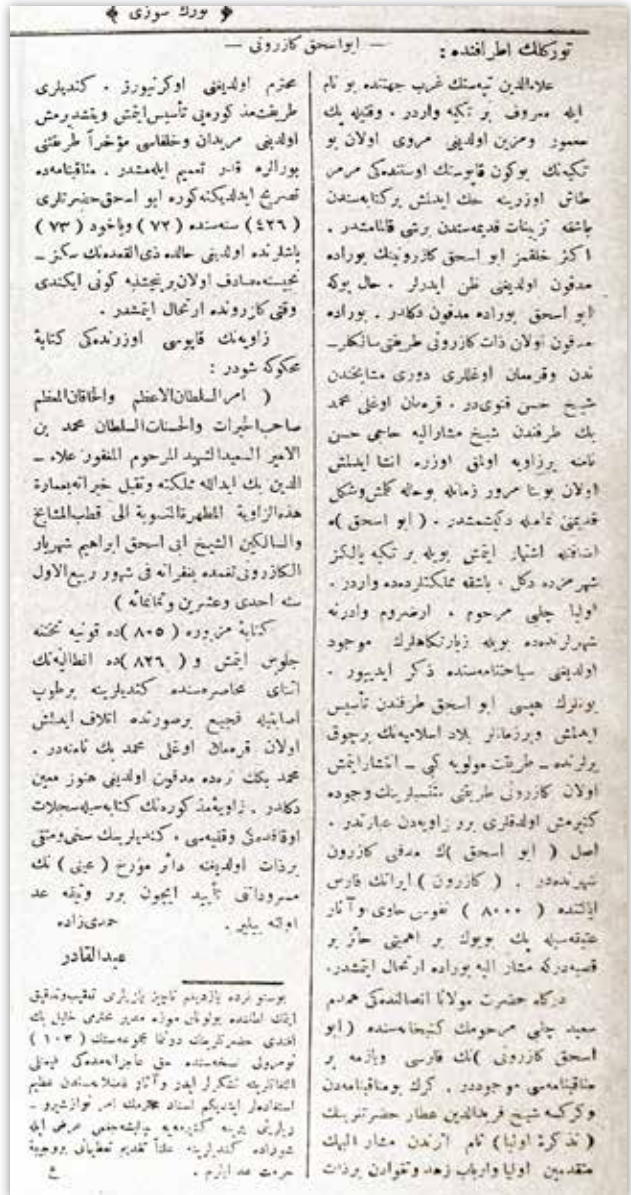 تورك سوزى
توركلك اطرافنده :
— ابواسحق كازرونى —
علاءالدين تپه‌سنك غرب جهتنده بو نام
ايله معروف بر تكيه واردر . وقتيله پك
معمور ومزين اولديغى مروى اولان بو
تكيه‌نك بوكون قاپوسنك اوستنده‌كى مرمر
طاش اوزرينه حك ايدلمش بركتابه‌سندن
باشقه تزينات قديمه‌سندن برشى قالمامشدر .
اكثر خلقمز ابو اسحق كازرونينك بوراده
مدفون اولديغى ظن ايدرلر . حال بوكه
ابو اسحق بوراده مدفون دكلدر . بوراده
مدفون اولان ذات كازرونى طريقتى سالكلر‌ـ
ندن وقره‌مان اوغللرى دورى مشايخندن
شيخ حسن قنوى‌در . قره‌مان اوغلى محمد
بك طرفندن شيخ مشاراليه حاجى حسن
نامنه برزاويه اولمق اوزره انشا ايدلمش
اولان بوبنا مرور زمانله بوحاله كلمش وشكل
قديمنى تماميله دكيشمشدر . ( ابو اسحق )ه
اضافتله اشتهار ايتمش بويله بر تكيه يالكز
شهرمزده دكل ، باشقه مملكتلرده‌ده واردر .
اوليا چلبى مرحوم ، ارضروم وادرنه
شهرلرنده‌ده بويله زيارتكاهلرك موجود
اولديغنى سياحتنامه‌سنده ذكر ايدييور .
بونلرك هپسى ابو اسحق طرفندن تأسيس
ايدلمش وبرزمانلر بلاد اسلاميه‌نك برچوق
يرلرنده ـ طريقت مولويه كبى ـ انتشار ايتمش
اولان كازرونى طريقتى منتسبلرينك وجوده
كتيرمش اولدقلرى برر زاويه‌دن عبارتدر .
اصل ( ابو اسحق )ك مدفنى كازرون
شهرنده‌در . ( كازرون ) ايرانك فارس
ايالتنده ( ٨٠٠٠ ) نفوسى حاوى وآثار
عتيقه‌سيله پك بويوك بر اهميتى حائز بر
قصبه‌دركه مشار اليه بوراده ارتحال ايتمشدر.
دركاه حضرت مولانا اتصالنده‌كى همدم
سعيد چلبى مرحومك كتبخانه‌سنده ( ابو
اسحق كازرونى )نك فارسى ويازمه بر
مناقبنامه‌سى موجوددر . كرك بومناقبنامه‌دن
وكركسه شيخ فريدالدين عطار حضرتلرينك
( تذكرة اوليا ) نام اثرندن مشار اليهك
متقدمين اوليا وارباب زهد وتقوادن برذات
محترم اولديغنى اوكرنييورز . كنديلرى
طريقت مذكوره‌يى تأسيس ايتمش ويتشديرمش
اولديغى مريدان وخلفاسى مؤخراً طريقتنى
بورالره قدر تعميم ايله‌مشدر . مناقبنامه‌ده
تصريح ايدلديكنه كوره ابو اسحق حضرتلرى
( ٤٢٦ ) سنه‌سنده ( ٧٢ ) وياخود ( ٧٣ )
ياشلرنده اولديغى حالده ذى القعده‌نك سكز ـ
نجيسنه مصادف اولان برپنجشنبه كونى ايكندى
وقتى كازرونده ارتحال ايتمشدر .
زاويه‌نك قاپوسى اوزرنده‌كى كتابهٔ
محكوكه شودر :
( امر السلطان الاعظم والخاقان المعظم
صاحب الخيرات والحسنات السلطان محمد بن
الامير السعيد الشهيد المرحوم المغفور علاء ـ
الدين بك ايدالله مملكته وتقبل خيراته بعمارة
هذه الزاوية المطهرة المنسوبة الى قطب المشايخ
والسالكين الشيخ ابى اسحق ابراهيم شهريار
الكازرونى تغمده بغفرانه فى شهور ربيع الاول
سنه احدى وعشرين وثمانمائه )
كتابهٔ مزبوره ( ٨٠٥ )ده قونيه تختنه
جلوس ايتمش و ( ٨٢٦ )ده انطاليه‌نك
اثناى محاصره‌سنده كنديلرينه برطوپ
اصابتيله فجيع برصورتده اتلاف ايدلمش
اولان قره‌مان اوغلى محمد بك نامنه‌در .
محمد بكك نره‌ده مدفون اولديغى هنوز معين
دكلدر . زاويهٔ مذكوره‌نك كتابه‌سيله سجلات
اوقافده‌كى وقفيه‌سى ، كنديلرينك سنى ومتقى
برذات اولديغنه دائر مؤرخ ( عينى ) نك
مسروداتنى تأييد ايچون برر وثيقه عد
اولنه بيلير .
حمدى‌زاده
عبدالقادر
بوسنو نرده يازديغم ناچيز يازيلرى تعقيب وتدقيق
ايتمك لطفنده بولونان موزه مدير محترمى خليل بك
افندى حضرتلرينك دونكا مجموعه‌سنك ( ١٠٣ )
نومرولى نسخه‌سنده حق عاجزانه‌مده‌كى قيمتلى
التفاتلرينه تشكرلر ايدر وآثار فضلانه‌سندن عظيم
استفاده‌لر ايتديكم استاد محترمك امر نوازشپرو ـ
رلرينى يرينه كتيرمه‌يه چاليشه‌جغمى عرض ايله
شوراده كنديلرينه علناً تقديم تعظيماتى بروجيبهٔ
حرمت عد ايلرم .
ع